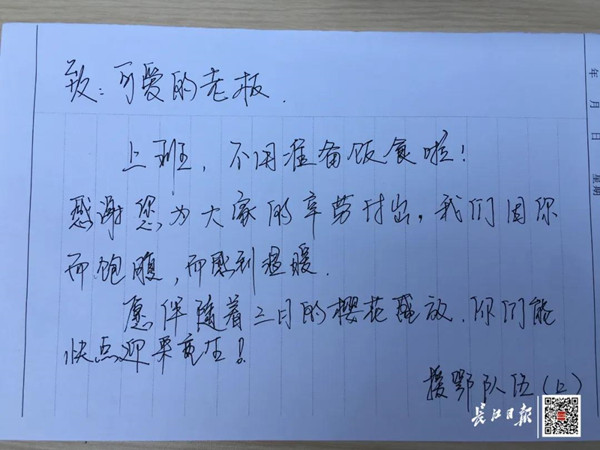 致：可爱的老板.
上班，不用准备饭食啦！
感谢您为大家的辛劳付出，我们因你
而饱腹，而感到温暖.
愿伴随着三月的樱花绽放.你们能
快点迎来重生！
援鄂队伍
长江日报
年 月 日 星期